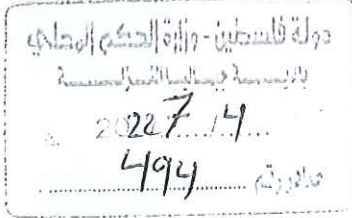 دولة فلسطين - وزارة الحكم المحلي
2022 7/4
494
صادر رقم